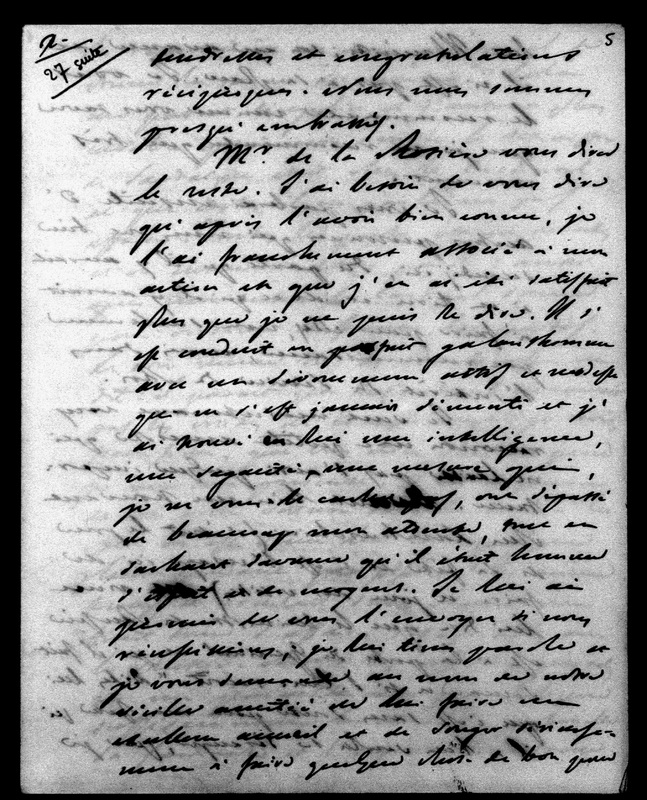 2-
27 suite
5
tendresses et congratulations
réciproques. Nous nous sommes
presqu' embrassés.
Mr. de la Rosière vous dira
le reste. J'ai besoin de vous dire
qu' après l'avoir bien connu, je
l'ai franchement associé à mon
action et que j'en ai été satisfait
plus que je ne puis le dire. Il s'
est conduit en parfait galanthomme
avec un dévouement actif et modeste
qui ne s'est jamais démenti et j'
ai trouvé en lui une intelligence,
une sagacité, une mesure qui,
je ne vous le cache pas, ont dépassé
de beaucoup mon attente, tout en
sachant d'avance qu'il était homme
d'esprit et de moyens. Je lui ai
promis de vous l'envoyer si nous
réussissions; je lui tiens parole et
je vous demande au nom de notre
vieille amitié de lui faire un
excellent accueil et de songer sérieuse-
ment à faire quelque chose de bon pour